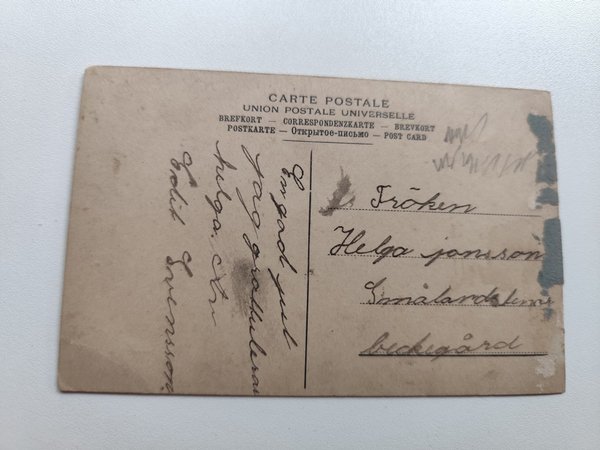 CARTE POSTALE
UNION POSTALE UNIVERSELLE
BREFKORT – CORRESPONDENZKARTE – BREVKORT
POSTKARTE – Открытое-письмо – POST CARD
En god jul
jag gratulerar
helga
Edit Svensson
Fröken
Helga jonsson
Smålands
beckegård